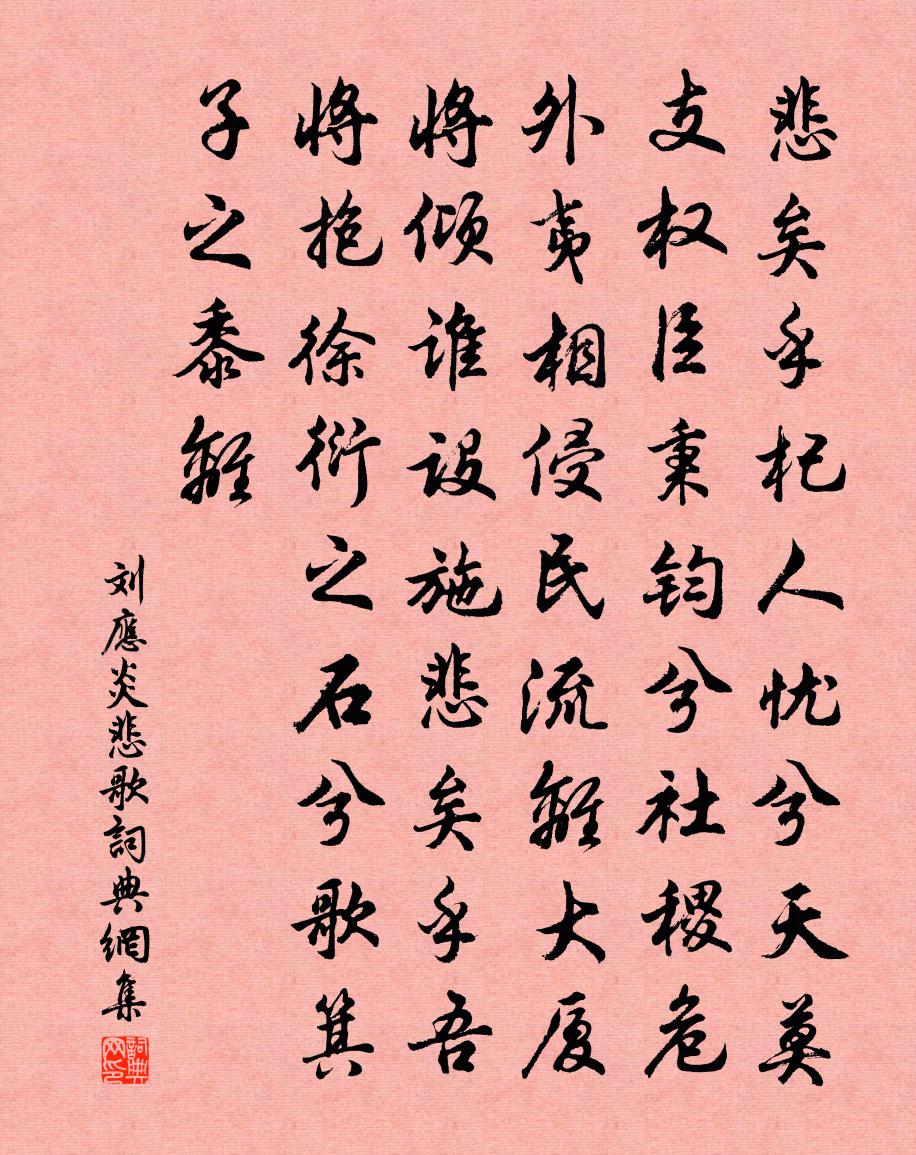 悲矣乎杞人忧兮天莫
支权臣秉钧兮社稷危
外夷相侵民流離大厦
将倾谁設施悲矣乎吾
将抱徐衍之石兮歌箕
子之黍離
刘應炎悲歌詞典網集
詞典网印